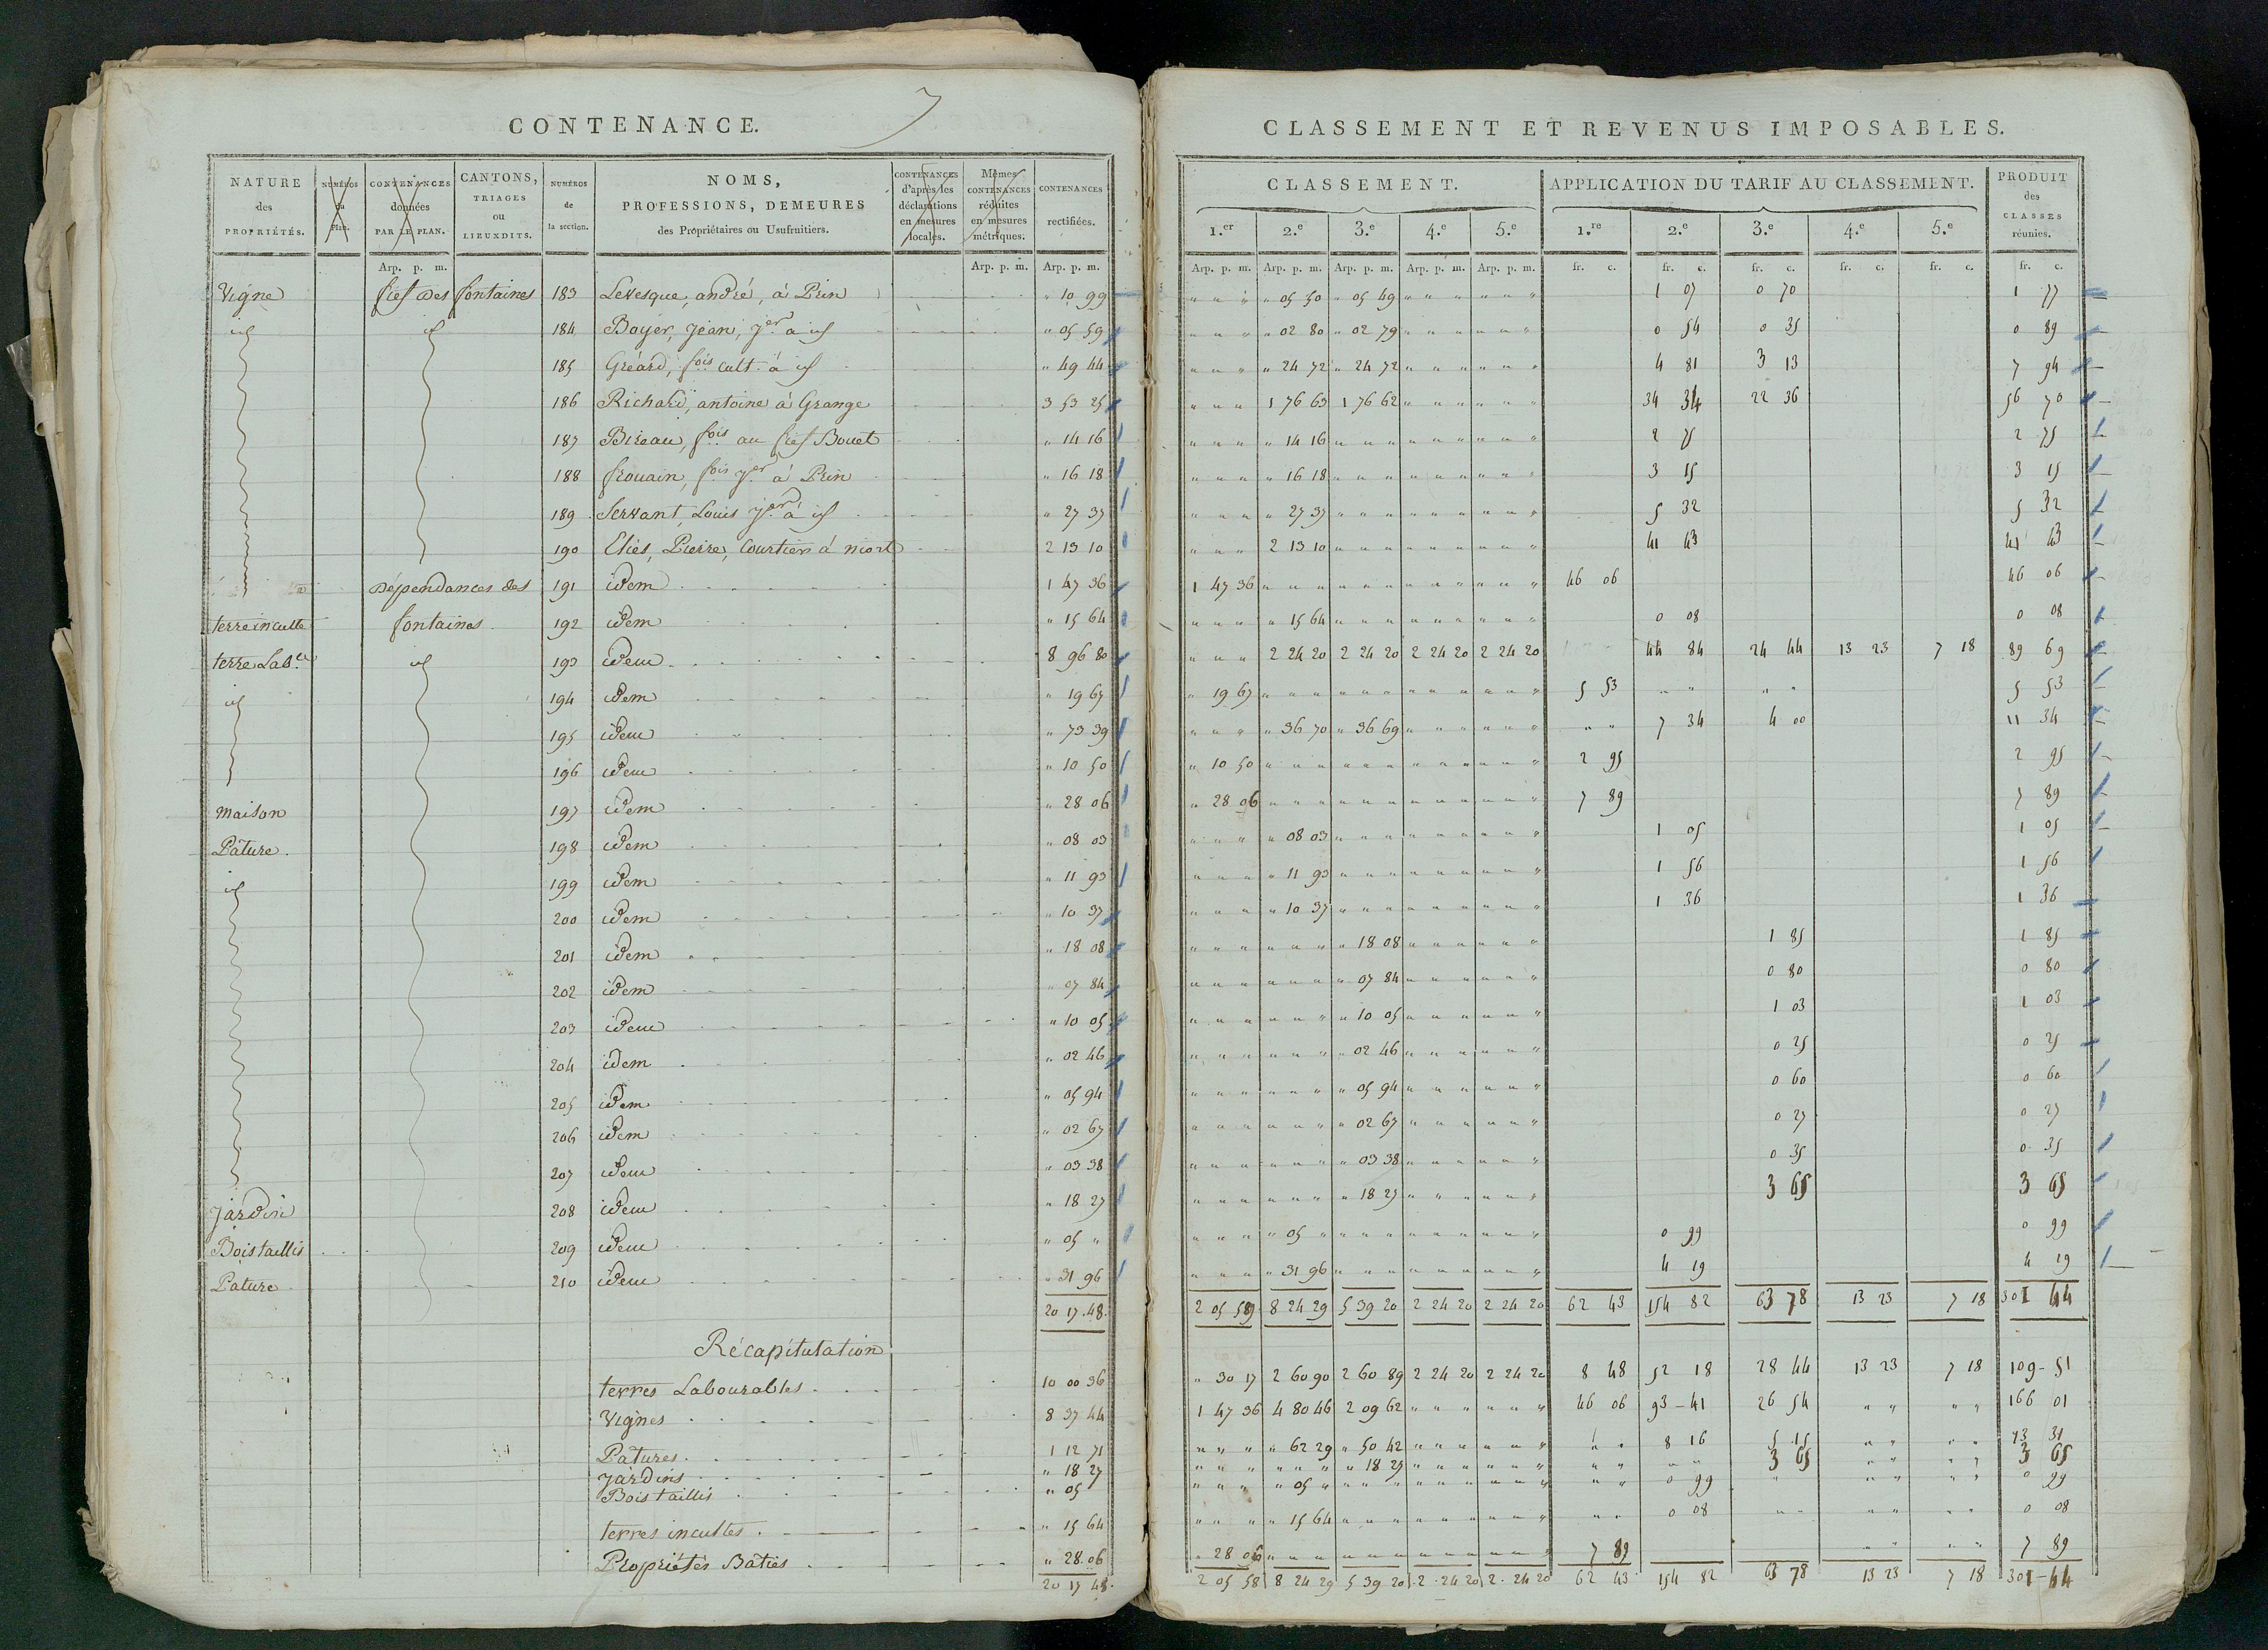 7
CONTENANCE.
NATURE des PROPRIÉTÉS.
NUMÉROS du Plan.
CONTENANCES données PAR LE PLAN.
CANTONS, TRIAGES ou LIEUXDITS.
NUMÉROS de la section.
NOMS, PROFESSIONS, DEMEURES des Propriétaires ou Usufruitiers.
CONTENANCES d'après les déclarations en mesures locales.
Mêmes CONTENANCES réduites en mesures métriques.
CONTENANCES rectifiées.
Arp. p. m. Arp. p. m. Arp. p. m.
Vigne fief des fontaines 183 Levesque, andré, à Prin " 10 99
id id 184 Boyer, jean, jer à id " 05 59
185 Gréard, fois cult. à id " 49 44
186 Richard, antoine à Grange 3 53 25
187 Bireau, fois au fief Bouet " 14 16
188 frouain, fois jer à Prin " 16 18
189 Servant, Louis jer à id " 27 37
190 Eliès, Pierre, Courtier à niort 2 13 10
Dépendances des 191 idem 1 47 36
terre inculte fontaines 192 idem " 15 64
terre Lab.le id 193 idem 8 96 80
id 194 idem " 19 67
195 idem " 73 39
196 idem " 10 50
maison 197 idem " 28 06
Pâture 198 idem " 08 03
id 199 idem " 11 93
200 idem " 10 37
201 idem " 18 08
202 idem " 07 84
203 idem " 10 05
204 idem " 02 46
205 idem " 05 94
206 idem " 02 67
207 idem " 03 38
jardin 208 idem " 18 27
Bois taillis 209 idem " 05 "
Pature 210 idem " 31 96
20 17 48
Récapitulation
terres Labourables 10 00 36
Vignes 8 37 44
Patures 1 12 71
jardins " 18 27
Bois taillis " 05
terres incultes " 15 64
Propriétés Baties " 28 06
20 17 48
CLASSEMENT ET REVENUS IMPOSABLES.
CLASSEMENT. APPLICATION DU TARIF AU CLASSEMENT. PRODUIT des CLASSES réunies.
1.er 2.e 3.e 4.e 5.e 1.re 2.e 3.e 4.e 5.e
Arp. p. m. Arp. p. m. Arp. p. m. Arp. p. m. Arp. p. m. fr. c. fr. c. fr. c. fr. c. fr. c. fr. c.
" 05 50 " 05 49 1 07 0 70 1 77
" 02 80 " 02 79 0 54 0 35 0 89
" 24 72 " 24 72 4 81 3 13 7 94
1 76 63 1 76 62 34 34 22 36 56 70
" 14 16 2 75 2 75
" 16 18 3 15 3 15
" 27 37 5 32 5 32
2 13 10 41 43 41 43
1 47 36 46 06 46 06
" 15 64 0 08 0 08
2 24 20 2 24 20 2 24 20 2 24 20 44 84 24 44 13 23 7 18 89 69
" 19 67 5 53 5 53
" 36 70 " 36 69 7 34 4 00 11 34
" 10 50 2 95 2 95
" 28 06 7 89 7 89
" 08 03 1 05 1 05
" 11 93 1 56 1 56
" 10 37 1 36 1 36
" 18 08 1 85 1 85
" 07 84 0 80 0 80
" 10 05 1 03 1 03
" 02 46 0 25 0 25
" 05 94 0 60 0 60
" 02 67 0 27 0 27
" 03 38 0 35 0 35
" 18 27 3 65 3 65
" 05 " 0 99 0 99
" 31 96 4 19 4 19
2 05 59 8 24 29 5 39 20 2 24 20 2 24 20 62 43 154 82 63 78 13 23 7 18 301 44
" 30 17 2 60 90 2 60 89 2 24 20 2 24 20 8 48 52 18 28 44 13 23 7 18 109 51
1 47 36 4 80 46 2 09 62 46 06 93 41 26 54 166 01
" 62 29 " 50 42 8 16 5 15 13 31
" 18 27 3 65 3 65
" 05 " 0 99 0 99
" 15 64 0 08 0 08
" 28 06 7 89 7 89
2 05 58 8 24 29 5 39 20 2 24 20 2 24 20 62 43 154 82 63 78 13 23 7 18 301 44